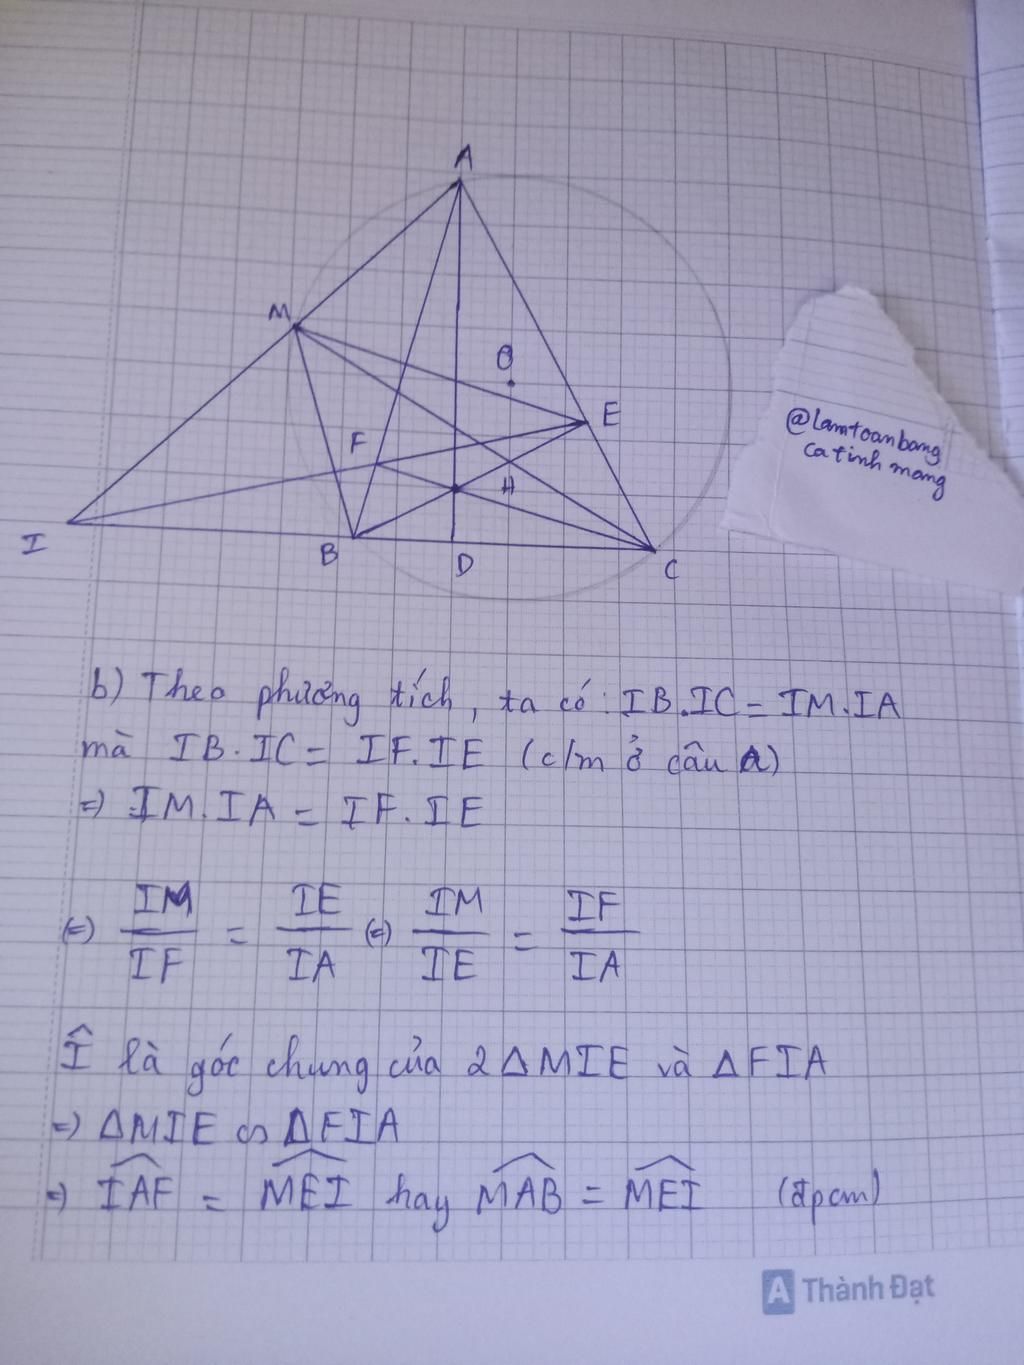 A
M
O
E
F
H
I
B
D
C
@lamtoanbang
catinhmang
b) Theo phương tích, ta có: IB.IC = IM.IA
mà IB.IC = IF.IE (c/m ở câu A)
=) IM.IA = IF.IE
(=) IM/IF = IE/IA (=) IM/IE = IF/IA
Î là góc chung của 2 ΔMIE và ΔFIA
=) ΔMIE ∽ ΔFIA
=) \widehat{IAF} = \widehat{MEI} hay \widehat{MAB} = \widehat{MEI} (đpcm)
A Thành Đạt